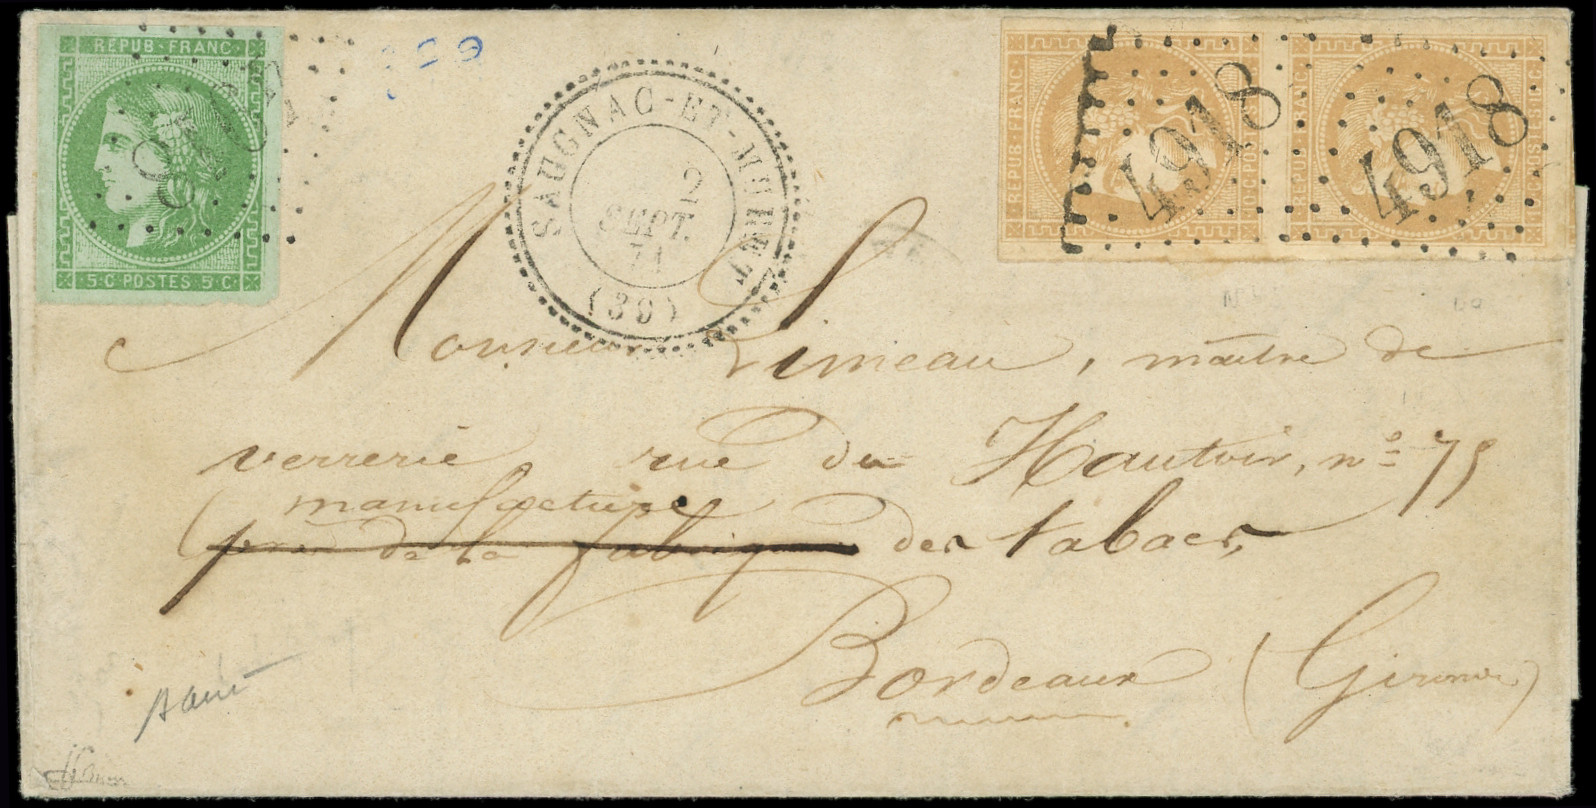 REPUB · FRANC ·
5 · C POSTES 5 · C ·
4918
SAUGNAC-ET-MURET
2
SEPT.
71
(39)
REPUB · FRANC ·
10 · C · POSTES · 10 · C
4918
REPUB · FRANC ·
10 · C · POSTES · 10 · C
4918
Monsieur Limeau, maître de
verrerie rue du Hautoir, n° 75
manufacture
près de la fabrique des tabacs,
Bordeaux (Gironde)